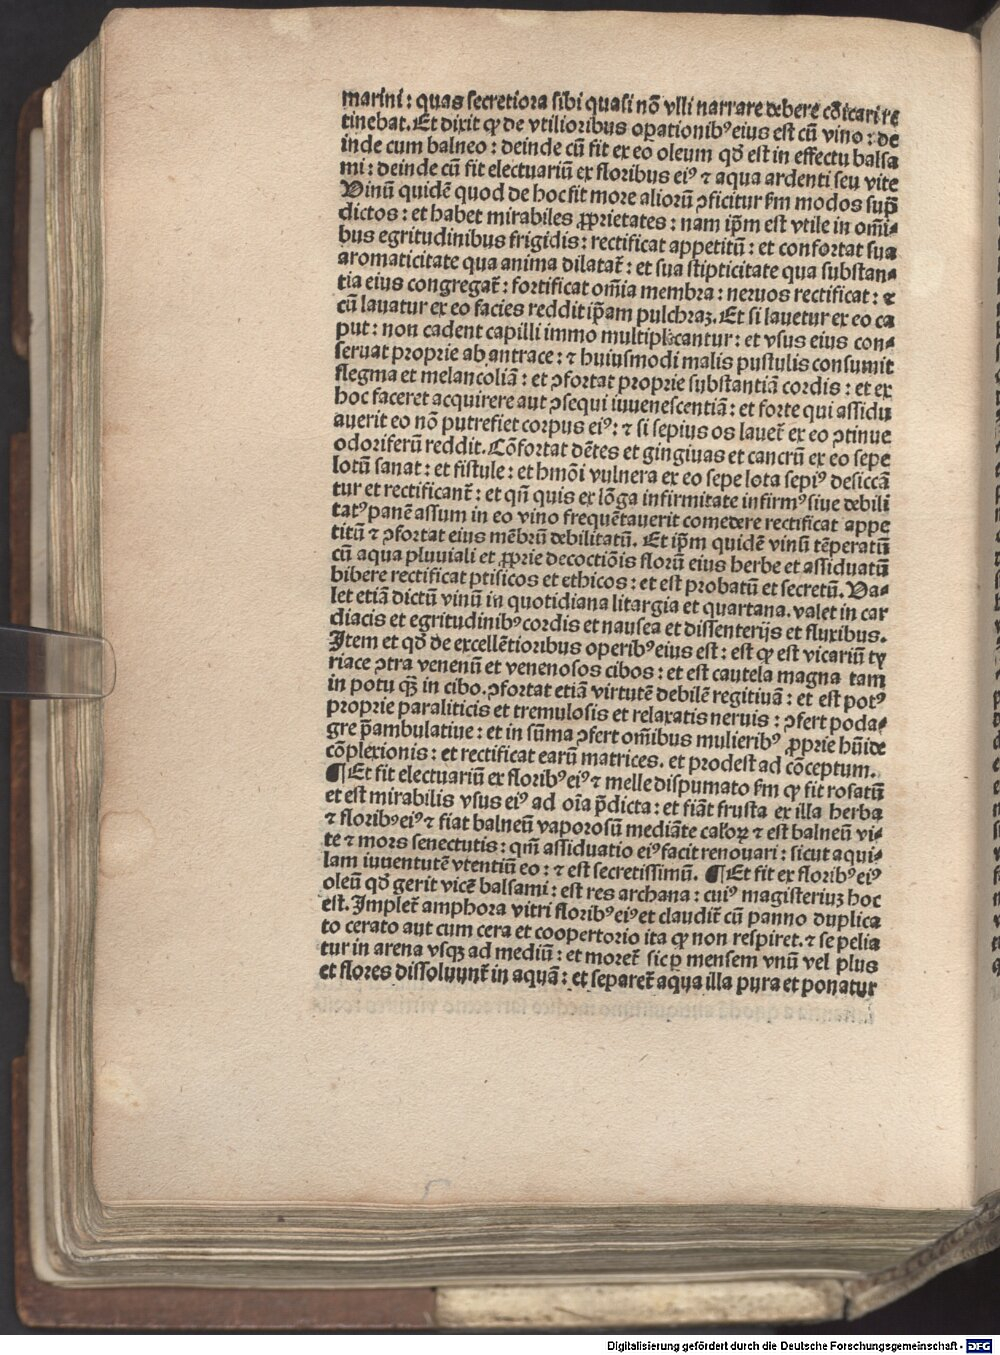 marini: quas secretiora sibi quasi nō vlli narrare debere cōicari re
tinebat. Et dixit ꝙ de vtilioribus oꝑationibꝰ eius est cū vino: de
inde cum balneo: deinde cū fit ex eo oleum qd̄ est in effectu balsa
mi: deinde cū fit electuariū ex floribus eiꝰ ⁊ aqua ardenti seu vite
Vinū quidē quod de hoc fit more aliorū ꝯficitur ẜm modos sup̄
dictos: et habet mirabiles ꝓprietates: nam ip̄m est vtile in om̄i-
bus egritudinibus frigidis: rectificat appetitū: et confortat sua
aromaticitate qua anima dilatat̄: et sua stipticitate qua substan-
tia eius congregat̄: fortificat om̄ia membra: neruos rectificat: ⁊
cū lauatur ex eo facies reddit ip̄am pulchraꝫ. Et si lauetur ex eo ca
put: non cadent capilli immo multiplicantur: et vsus eius con-
seruat proprie ab antrace: ⁊ huiusmodi malis pustulis consumit
flegma et melancoliā: et ꝯfortat proprie substantiā cordis: et ex
hoc faceret acquirere aut ꝯsequi iuuenescentiā: et forte qui assidu
auerit eo nō putrefiet corpus eiꝰ: ⁊ si sepius os lauet̄ ex eo ꝯtinue
odoriferū reddit. Cōfortat dētes et gingiuas et cancrū ex eo sepe
lotū sanat: et fistule: et hmōi vulnera ex eo sepe lota sepiꝰ desiccā
tur et rectificant̄: et qn̄ quis ex lōga infirmitate infirmꝰ siue debili
tatꝰ panē assum in eo vino frequētauerit comedere rectificat appe
titū ⁊ ꝯfortat eius mēbrū debilitatū. Et ip̄m quidē vinū tēperatū
cū aqua pluuiali et ꝓprie decoctiōis florū eius herbe et assiduatū
bibere rectificat ptisicos et ethicos: et est probatū et secretū. Va-
let etiā dictū vinū in quotidiana litargia et quartana. valet in car
diacis et egritudinibꝰ cordis et nausea et dissenterijs et fluxibus.
Item et qd̄ de excellētioribus operibꝰ eius est: est ꝙ est vicariū ty
riace ꝯtra venenū et venenosos cibos: et est cautela magna tam
in potu qꝫ in cibo. ꝯfortat etiā virtutē debilē regitiuā: et est potꝰ
proprie paraliticis et tremulosis et relaxatis neruis: ꝯfert poda-
gre p̄ambulatiue: et in sūma ꝯfert om̄ibus mulieribꝰ ꝓprie hūide
cōplexionis: et rectificat earū matrices. et prodest ad cōceptum.
¶ Et fit electuariū ex floribꝰ eiꝰ ⁊ melle dispumato ẜm ꝙ fit rosatū
et est mirabilis vsus eiꝰ ad oīa p̄dicta: et fiāt frusta ex illa herba
⁊ floribꝰ eiꝰ ⁊ fiat balneū vaporosū mediāte caloꝝ ⁊ est balneū vi-
te ⁊ mors senectutis: qm̄ assiduatio eiꝰ facit renouari: sicut aqui-
lam iuuentutē vtentiū eo: ⁊ est secretissimū. ¶ Et fit ex floribꝰ eiꝰ
oleū qd̄ gerit vicē balsami: est res archana: cuiꝰ magisteriuꝫ hoc
est. Implet̄ amphora vitri floribꝰ eiꝰ et claudit̄ cū panno duplica
to cerato aut cum cera et coopertorio ita ꝙ non respiret. ⁊ sepelia
tur in arena vsqꝫ ad mediū: et moret̄ sic ꝑ mensem vnū vel plus
et flores dissoluunt̄ in aquā: et separet̄ aqua illa pura et ponatur
Digitalisierung gefördert durch die Deutsche Forschungsgemeinschaft - DFG